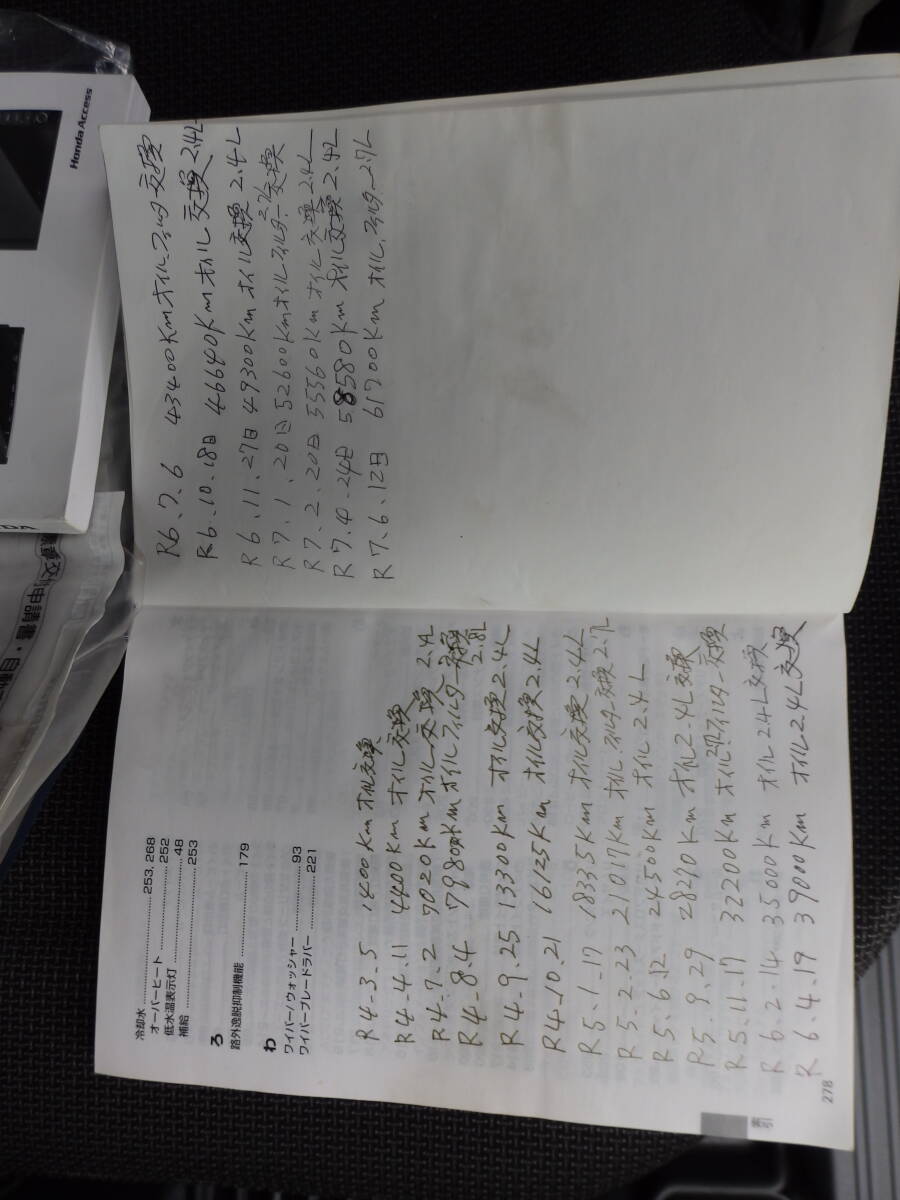 冷却水 ............... 253, 268
オーバーヒート ............... 252
低水温表示灯 ............... 48
補給 ............... 253
ろ
路外逸脱抑制機能 ............... 179
わ
ワイパー/ウォッシャー ............... 93
ワイパーブレードラバー ............... 221
R4-3.5 1400Km オイル交換
R4-4.11 4400Km オイル交換
R4-7.2 7020Km オイル交換 2.4L
R4-8.4 7980Km オイルフィルター交換 2.8L
R4-9.25 13300Km オイル交換 2.4L
R4-10.21 16125Km オイル交換 2.4L
R5-1-17 18335Km オイル交換 2.4L
R5-2-23 21017Km オイル.フィルター交換 2.7L
R5.6.12 24500Km オイル 2.4L
R5.9.29 28290Km オイル 2.4L 交換
R5.11.17 32200Km オイル.フィルター交換
R6.2.14 35000Km オイル 2.4L交換
R6.4.19 39000Km オイル 2.4L交換
278
索引
R6.7.6 43400Kmオイル-フィルター交換
R6.10.18日 46640Kmオイル交換 2.4L
R6.11.27日 49300Kmオイル交換 2.4L
R7.1.20日 52600Kmオイルフィルター交換
R7.2.20日 55560Kmオイル交換 2.4L
R7.4-24日 58580Km オイル交換 2.4L
R7.6.12日 61700Kmオイル.フィルター2.7L
Honda Access
申請書・自動